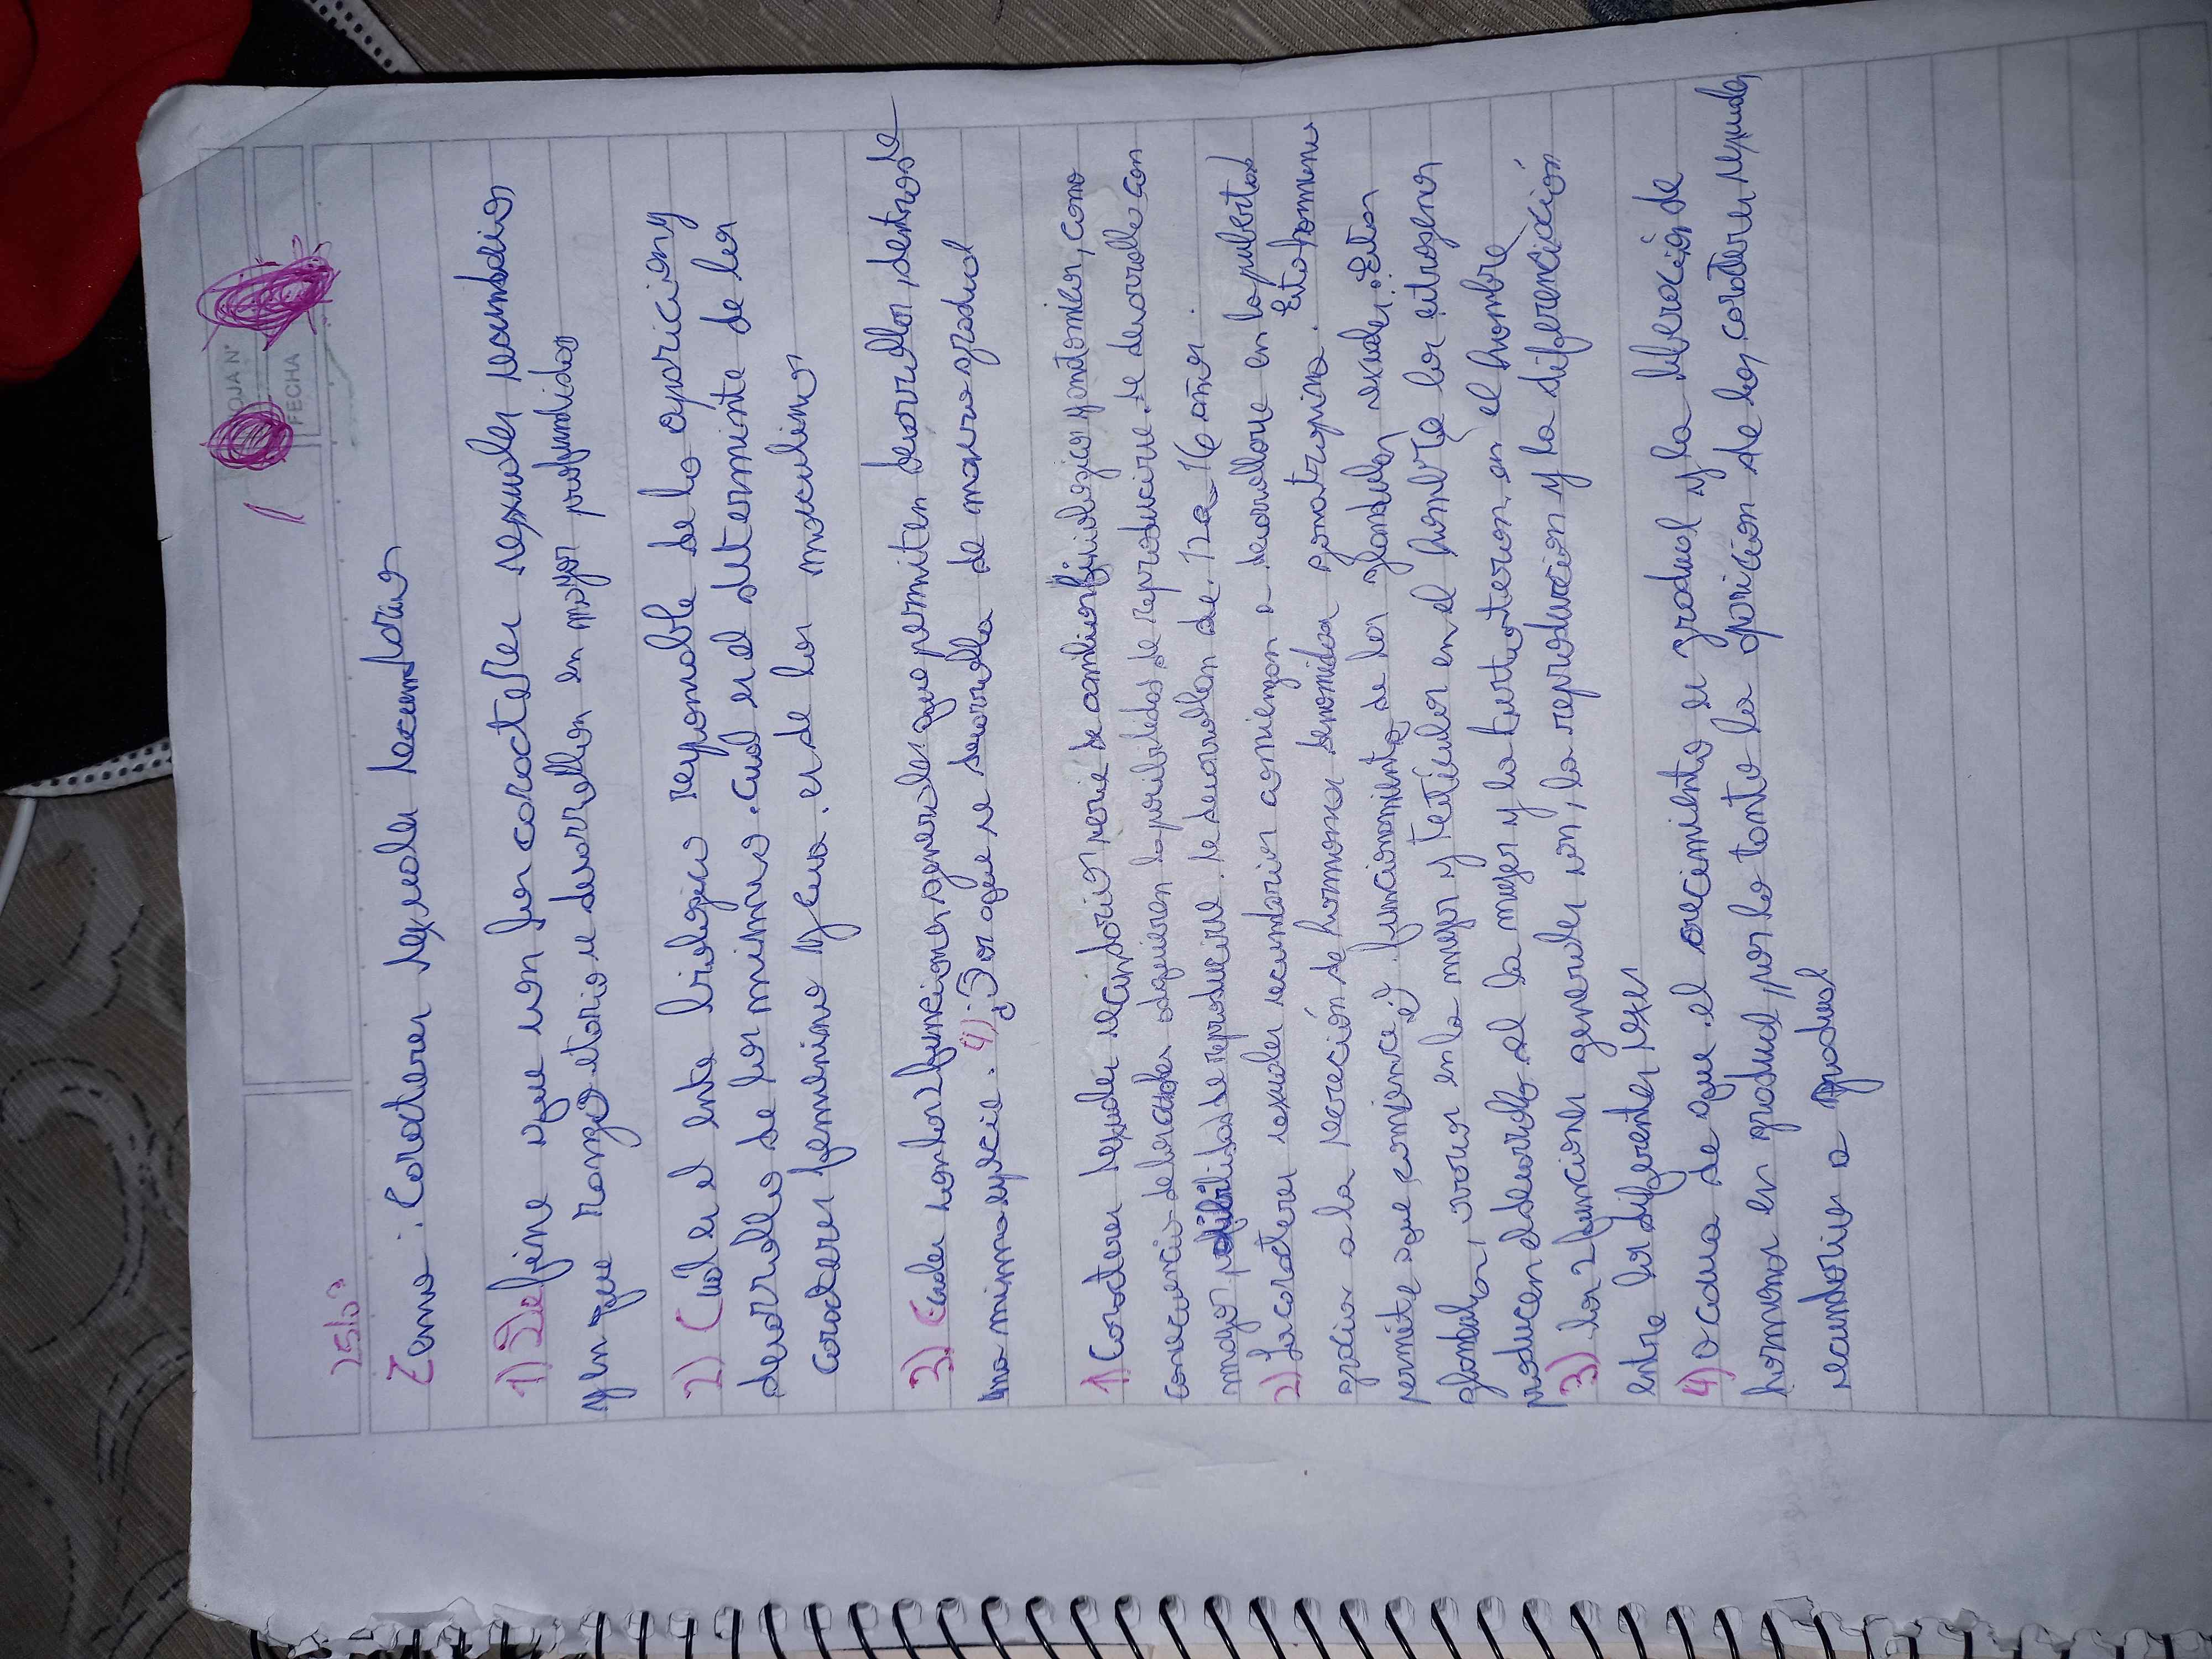 HOJA N°
FECHA
25/03
Tema: Caracteres sexuales secundarios
1) Define que son los caracteres sexuales secundarios
y en que rango etario se desarrollan en mayor profundidad
2) Cuál es el ente biologico responsable de la aparicion y
desarrollo de los mismos. Cual es el determinante de los
caracteres femeninos y cual es de los masculinos
3) Cuales son las 2 funciones generales que permiten desarrollar, dentro de
una misma especie. 4) ¿Por que se desarrolla de manera gradual
1) Caracteres sexuales secundarios serie de cambios fisiologicos y anatomicos, como
consecuencia de los cuales adquieren la posibilidad de reproducirse. Se desarrolla con
mayor posibilidad de reproducirse. Se desarrollan de 12 a 16 años.
2) Los caracteres sexuales secundarios comienzan a desarrollarse en la pubertad
gracias a la secreción de hormonas denominadas gonadotropina. Estas hormonas
permite que comience el funcionamiento de las glandulas sexuales. Estas
glandulas, ovarios en la mujer y testículos en el hombre los estrogenos
producen el desarrollo de la mujer y la testosterona en el hombre
3) Las 2 funciones generales son, la reproduccion y la diferenciación
entre los diferentes sexos
4) a causa de que el crecimiento es gradual y la liberación de
hormonas es gradual, por lo tanto la aparicion de los caracteres sexuales
secundarios a gradual